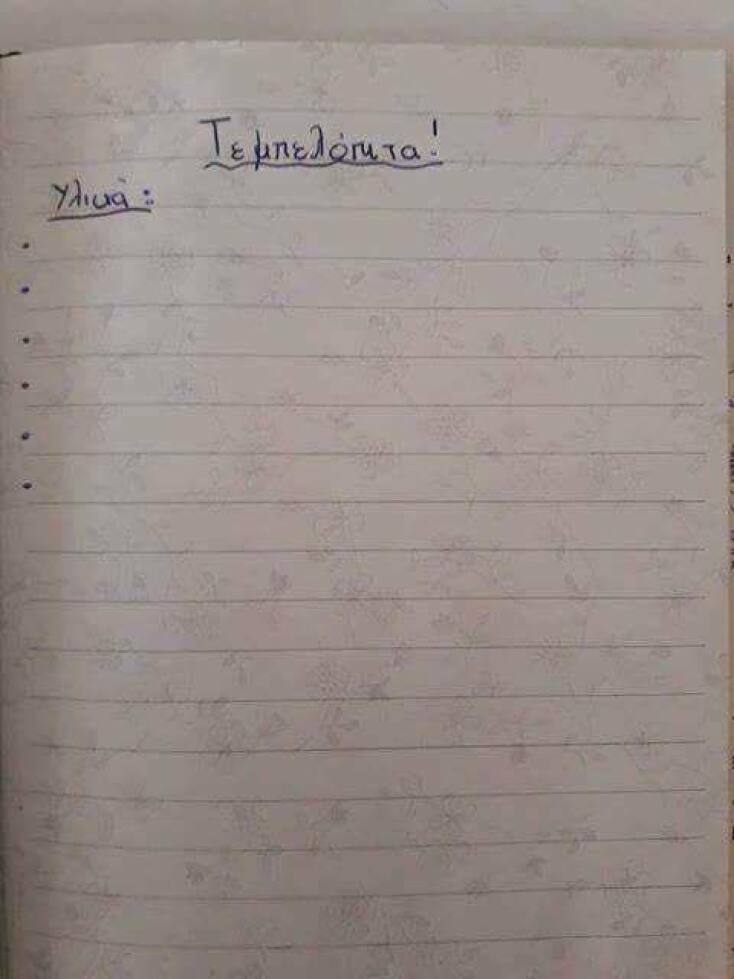 Τεμπελόπιτα!
Υλικά: